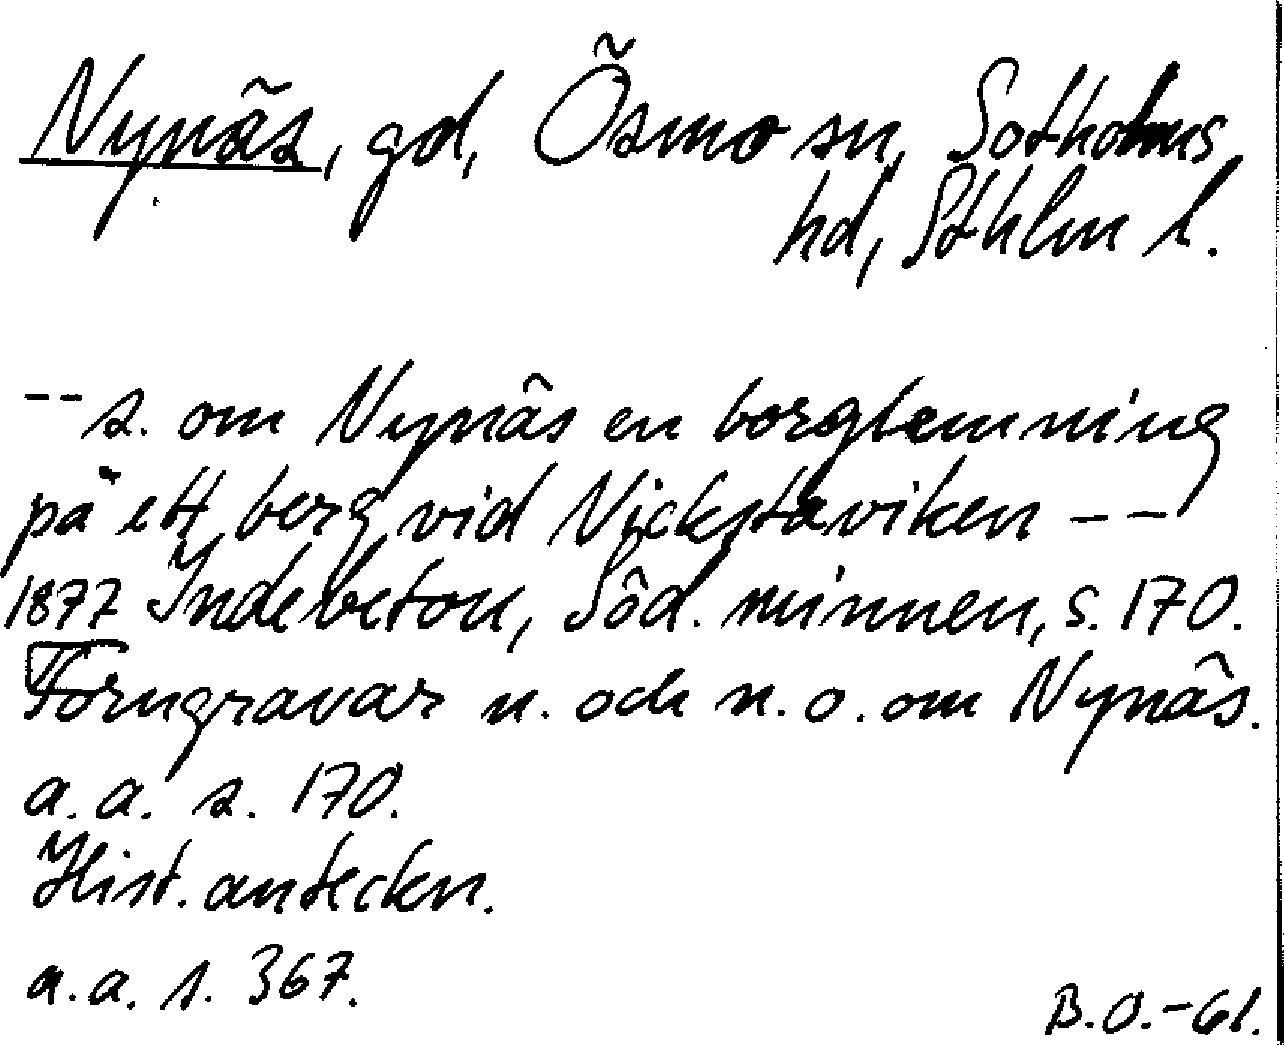 Nynäs, gd, Ösmo sn, Sotholms
hd, Sthlm l.
-- s. om Nynäs en borglemning
på ett berg vid Nickstaviken --
1877 Indebetou, Söd. minnen, s. 170.
Forngravar n. och n.o. om Nynäs.
a.a. s. 170.
Hist. anteckn.
a.a. s. 367.
B.O.-61.